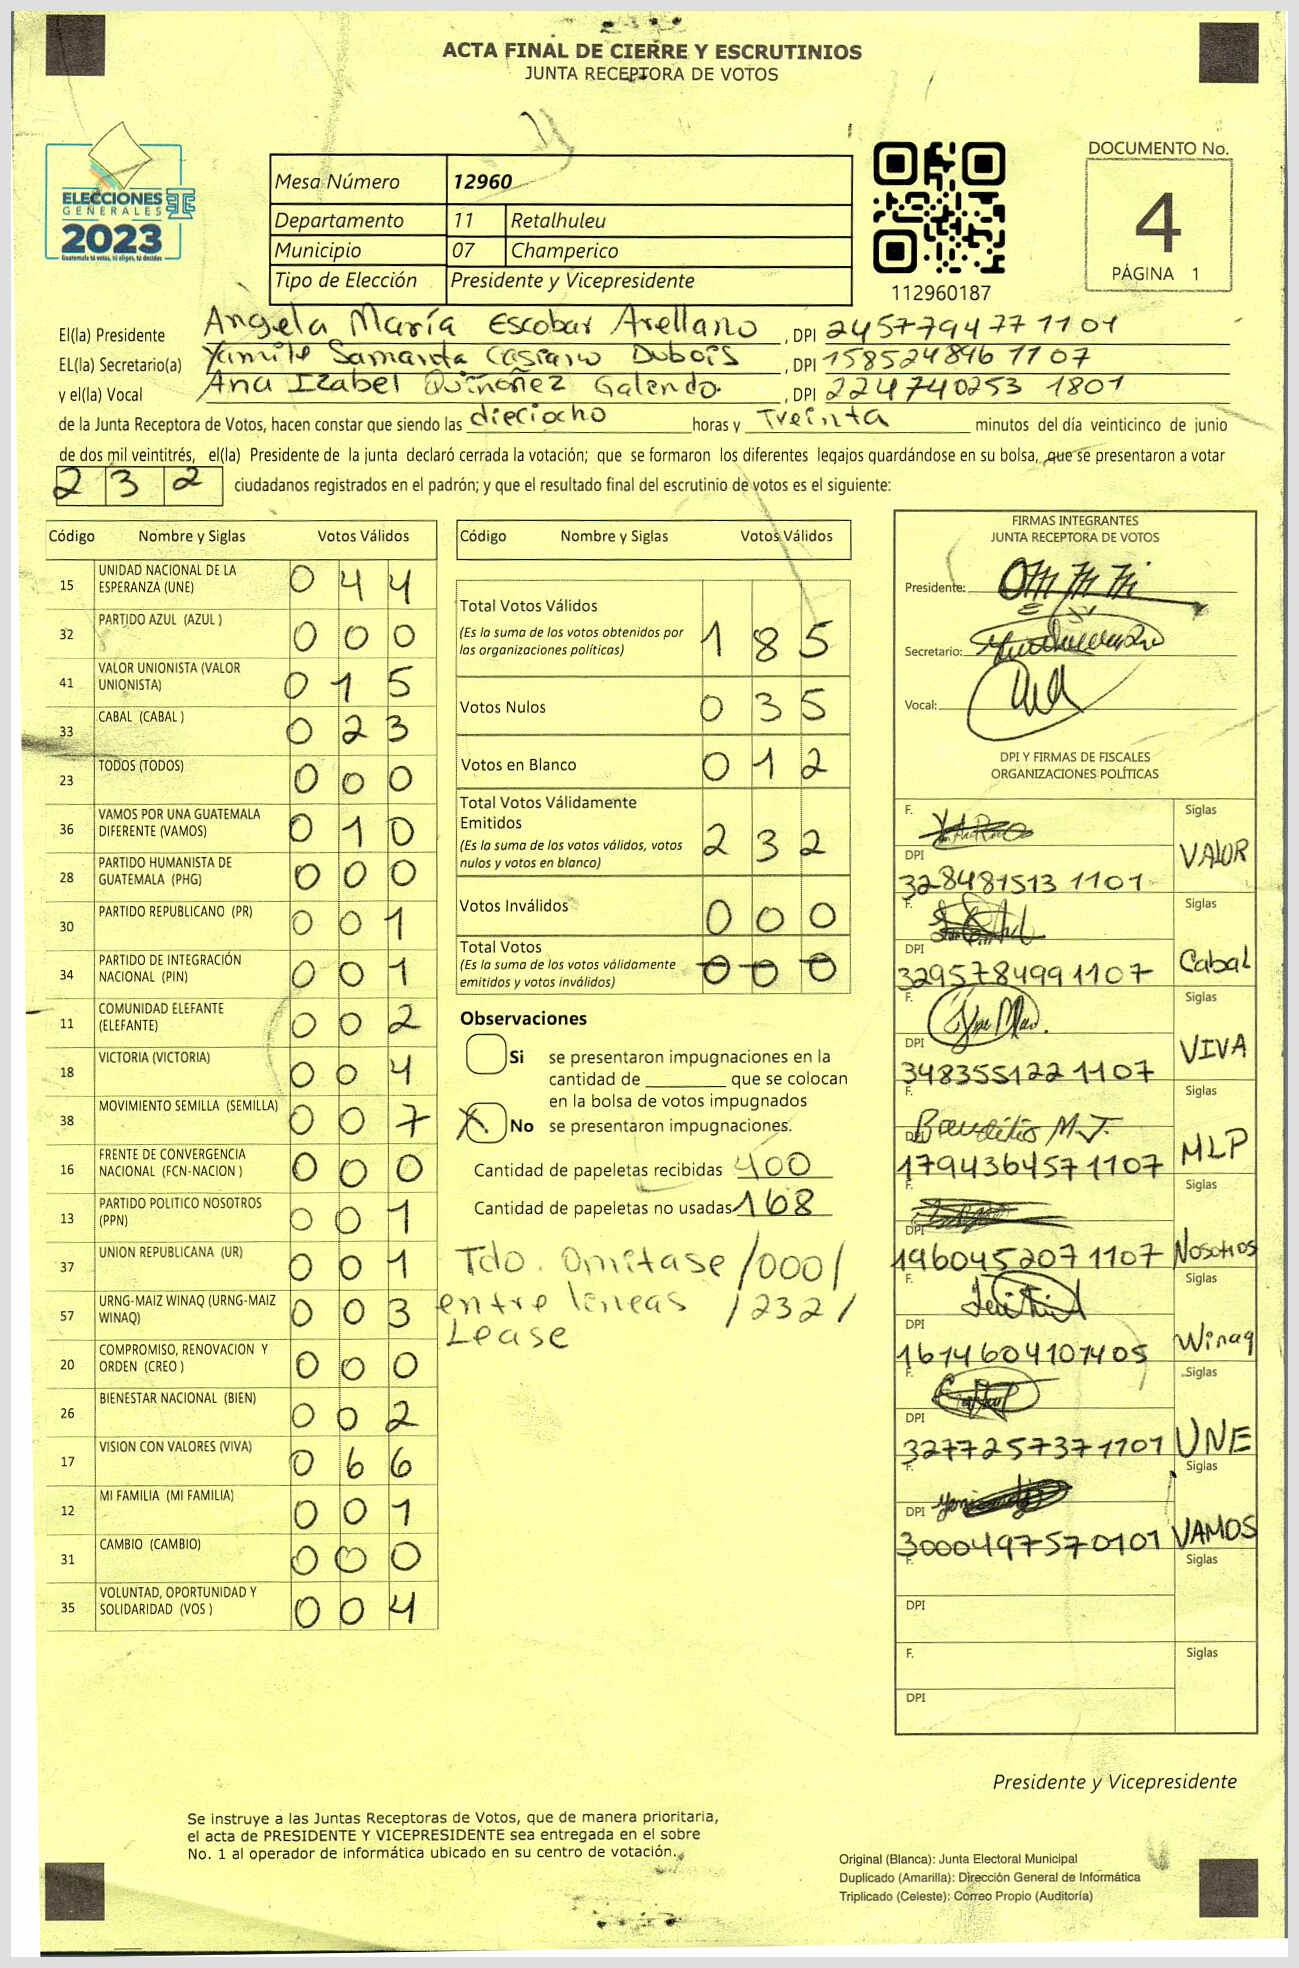 ACTA FINAL DE CIERRE Y ESCRUTINIOS
JUNTA RECEPTORA DE VOTOS
ELECCIONES
GENERALES
2023
Guatemala tú votas, tú eliges, tú decides
Mesa Número 12960
Departamento 11 Retalhuleu
Municipio 07 Champerico
Tipo de Elección Presidente y Vicepresidente
112960187
DOCUMENTO No.
4
PÁGINA 1
El(la) Presidente Angela María Escobar Arellano, DPI 2457794771101
EL(la) Secretario(a) Yamile Samanta Casiano Dubois, DPI 158524896 1107
y el(la) Vocal Ana Izabel Quiñoñez Galendo, DPI 224740253 1801
de la Junta Receptora de Votos, hacen constar que siendo las dieciocho horas y Treinta minutos del día veinticinco de junio
de dos mil veintitrés, el(la) Presidente de la junta declaró cerrada la votación; que se formaron los diferentes legajos quardándose en su bolsa, que se presentaron a votar
232 ciudadanos registrados en el padrón; y que el resultado final del escrutinio de votos es el siguiente:
Código Nombre y Siglas Votos Válidos
15 UNIDAD NACIONAL DE LA
ESPERANZA (UNE) 044
32 PARTIDO AZUL (AZUL ) 000
41 VALOR UNIONISTA (VALOR
UNIONISTA) 015
33 CABAL (CABAL ) 023
23 TODOS (TODOS) 000
36 VAMOS POR UNA GUATEMALA
DIFERENTE (VAMOS) 010
28 PARTIDO HUMANISTA DE
GUATEMALA (PHG) 000
30 PARTIDO REPUBLICANO (PR) 001
34 PARTIDO DE INTEGRACIÓN
NACIONAL (PIN) 001
11 COMUNIDAD ELEFANTE
(ELEFANTE) 002
18 VICTORIA (VICTORIA) 004
38 MOVIMIENTO SEMILLA (SEMILLA) 007
16 FRENTE DE CONVERGENCIA
NACIONAL (FCN-NACION ) 000
13 PARTIDO POLITICO NOSOTROS
(PPN) 001
37 UNION REPUBLICANA (UR) 001
57 URNG-MAIZ WINAQ (URNG-MAIZ
WINAQ) 003
20 COMPROMISO, RENOVACION Y
ORDEN (CREO ) 000
26 BIENESTAR NACIONAL (BIEN) 002
17 VISION CON VALORES (VIVA) 066
12 MI FAMILIA (MI FAMILIA) 001
31 CAMBIO (CAMBIO) 000
35 VOLUNTAD, OPORTUNIDAD Y
SOLIDARIDAD (VOS ) 004
Código Nombre y Siglas Votos Válidos
Total Votos Válidos
(Es la suma de los votos obtenidos por
las organizaciones políticas) 185
Votos Nulos 035
Votos en Blanco 012
Total Votos Válidamente
Emitidos
(Es la suma de los votos válidos, votos
nulos y votos en blanco) 232
Votos Inválidos 000
Total Votos
(Es la suma de los votos válidamente
emitidos y votos inválidos) 000
Observaciones
Si se presentaron impugnaciones en la
cantidad de ________ que se colocan
en la bolsa de votos impugnados
X No se presentaron impugnaciones.
Cantidad de papeletas recibidas 400
Cantidad de papeletas no usadas 168
Tdo. Omitase /000/
entre lineas /232/
Lease
FIRMAS INTEGRANTES
JUNTA RECEPTORA DE VOTOS
Presidente:
Secretario:
Vocal:
DPI Y FIRMAS DE FISCALES
ORGANIZACIONES POLÍTICAS
F. Siglas
DPI VALOR
328481513 1101
F. Siglas
DPI Cabal
329578499 1107
F. Siglas
DPI VIVA
348355122 1107
F. Siglas
DPI MLP
179436457 1107
F. Siglas
DPI Nosotros
196045207 1107
F. Siglas
DPI Winaq
1674604101405
F. Siglas
DPI UNE
327725737 1101
F. Siglas
DPI VAMOS
3000497570101
F. Siglas
DPI
F. Siglas
DPI
Presidente y Vicepresidente
Se instruye a las Juntas Receptoras de Votos, que de manera prioritaria,
el acta de PRESIDENTE Y VICEPRESIDENTE sea entregada en el sobre
No. 1 al operador de informática ubicado en su centro de votación.
Original (Blanca): Junta Electoral Municipal
Duplicado (Amarilla): Dirección General de Informática
Triplicado (Celeste): Correo Propio (Auditoría)